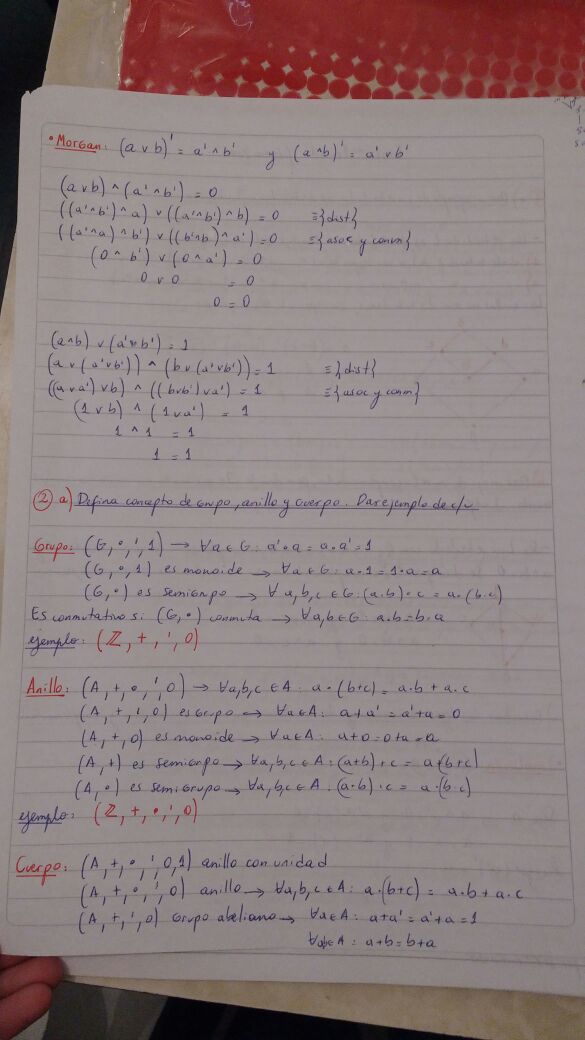 • Morgan: (a ∨ b)' = a' ∧ b' y (a ∧ b)' = a' ∨ b'
(a ∨ b) ∧ (a' ∧ b') = 0
((a' ∧ b') ∧ a) ∨ ((a' ∧ b') ∧ b) = 0 ≡{dist}
((a' ∧ a) ∧ b') ∨ ((b' ∧ b) ∧ a') = 0 ≡{asoc y conm}
(0 ∧ b') ∨ (0 ∧ a') = 0
0 ∨ 0 = 0
0 = 0
(a ∧ b) ∨ (a' ∨ b') = 1
(a ∨ (a' ∨ b')) ∧ (b ∨ (a' ∨ b')) = 1 ≡{dist}
((a ∨ a') ∨ b) ∧ ((b ∨ b') ∨ a') = 1 ≡{asoc y conm}
(1 ∨ b) ∧ (1 ∨ a') = 1
1 ∧ 1 = 1
1 = 1
② a) Defina concepto de Grupo, anillo y cuerpo. Dar ejemplo de c/u
Grupo: (G, ∘, ', 1) → ∀a ∈ G: a' ∘ a = a ∘ a' = 1
(G, ∘, 1) es monoide → ∀a ∈ G: a · 1 = 1 · a = a
(G, ∘) es semigrupo → ∀a, b, c ∈ G: (a · b) · c = a · (b · c)
Es conmutativo si (G, ∘) conmuta → ∀a, b ∈ G: a · b = b · a
ejemplo: (ℤ, +, ', 0)
Anillo: (A, +, ∘, ', 0) → ∀a, b, c ∈ A: a · (b + c) = a · b + a · c
(A, +, ', 0) es Grupo → ∀a ∈ A: a + a' = a' + a = 0
(A, +, 0) es monoide → ∀a ∈ A: a + 0 = 0 + a = a
(A, +) es semigrupo → ∀a, b, c ∈ A: (a + b) + c = a + (b + c)
(A, ∘) es semigrupo → ∀a, b, c ∈ A. (a · b) · c = a · (b · c)
ejemplo: (ℤ, +, ∘, ', 0)
Cuerpo: (A, +, ∘, ', 0, 1) anillo con unidad
(A, +, ∘, ', 0) anillo → ∀a, b, c ∈ A: a · (b + c) = a · b + a · c
(A, +, ', 0) Grupo abeliano → ∀a ∈ A: a + a' = a' + a = 1
∀a,b ∈ A: a + b = b + a